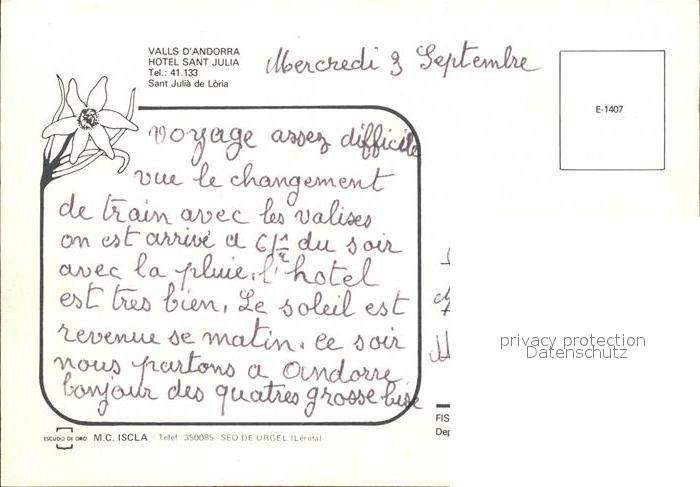 VALLS D'ANDORRA
HOTEL SANT JULIA
Tel.: 41.133
Sant Julià de Lòria
Mercredi 3 Septembre
E-1407
voyage assez difficile
vue le changement
de train avec les valises
on est arrivé a 6h 1/2 du soir
avec la pluie. l'hotel
est tres bien. Le soleil est
revenue se matin. ce soir
nous partons a Andorre
bonjour des quatres grosse bise
privacy protection
Datenschutz
ESCUDO DE ORO M.C. ISCLA - Telef. 350085 - SEO DE URGEL (Lérida)
FIS
Dep